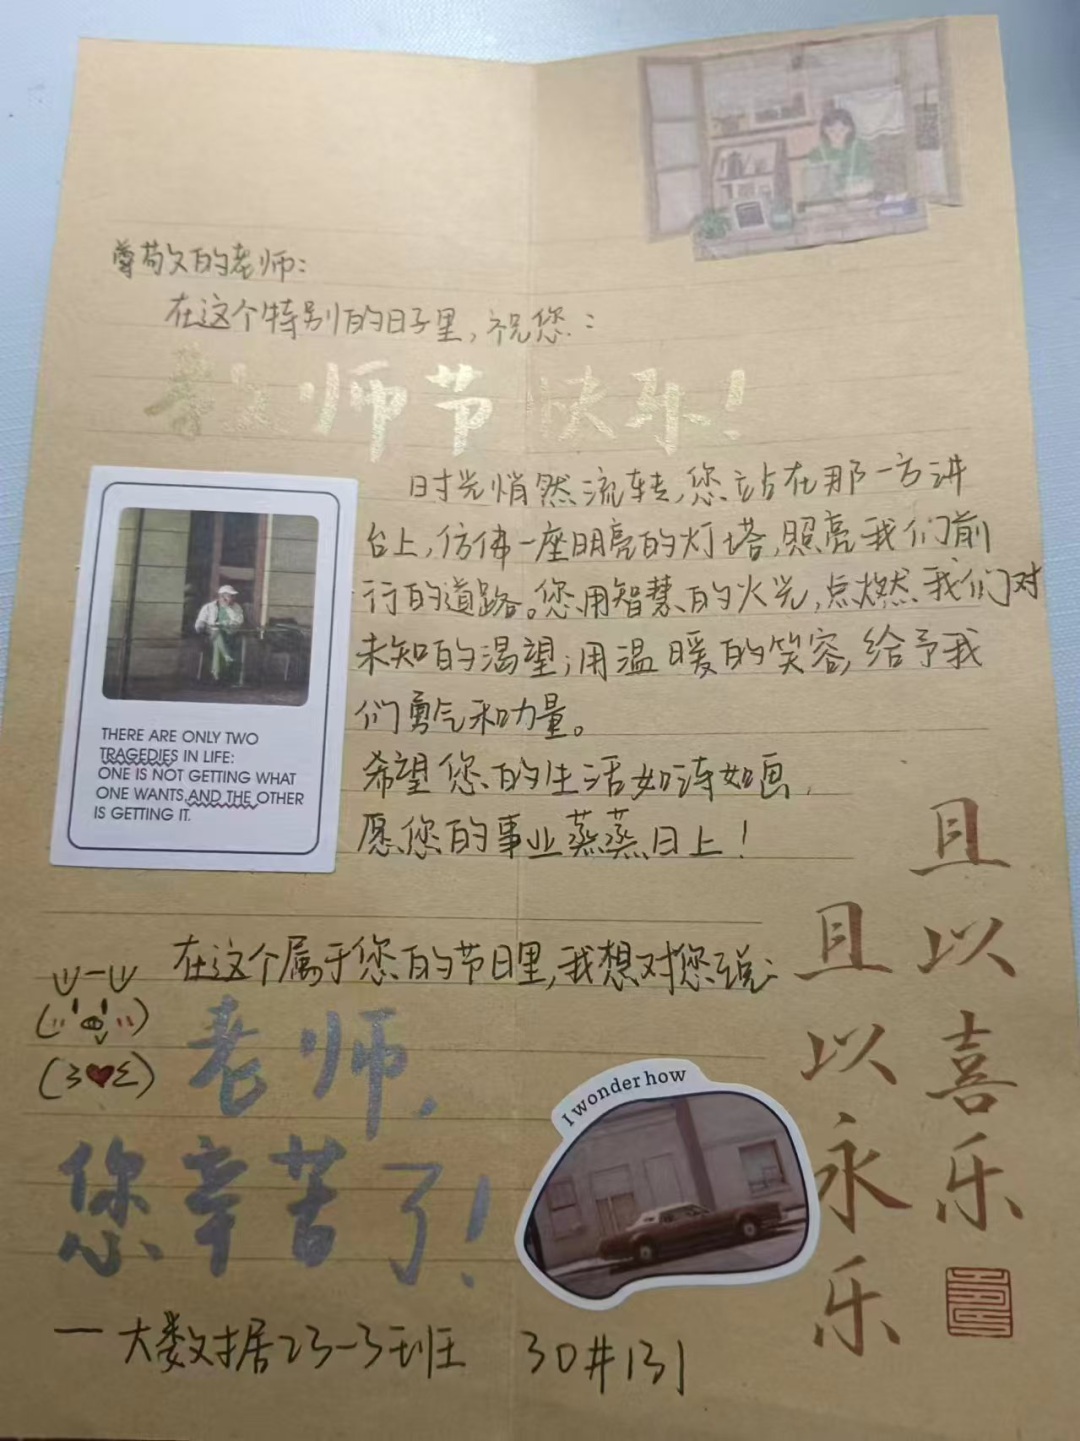 尊敬的老师：
在这个特别的日子里，祝您：
教师节快乐！
时光悄然流转，您站在那一方讲
台上，仿佛一座明亮的灯塔，照亮我们前
行的道路。您用智慧的火光，点燃我们对
未知的渴望；用温暖的笑容，给予我
们勇气和力量。
希望您的生活如诗如画，
愿您的事业蒸蒸日上！
THERE ARE ONLY TWO
TRAGEDIES IN LIFE:
ONE IS NOT GETTING WHAT
ONE WANTS,AND THE OTHER
IS GETTING IT.
在这个属于您的节日里，我想对您说：
老师，
您辛苦了！
I wonder how
且以喜乐
且以永乐
一大数据23-3班 30#131